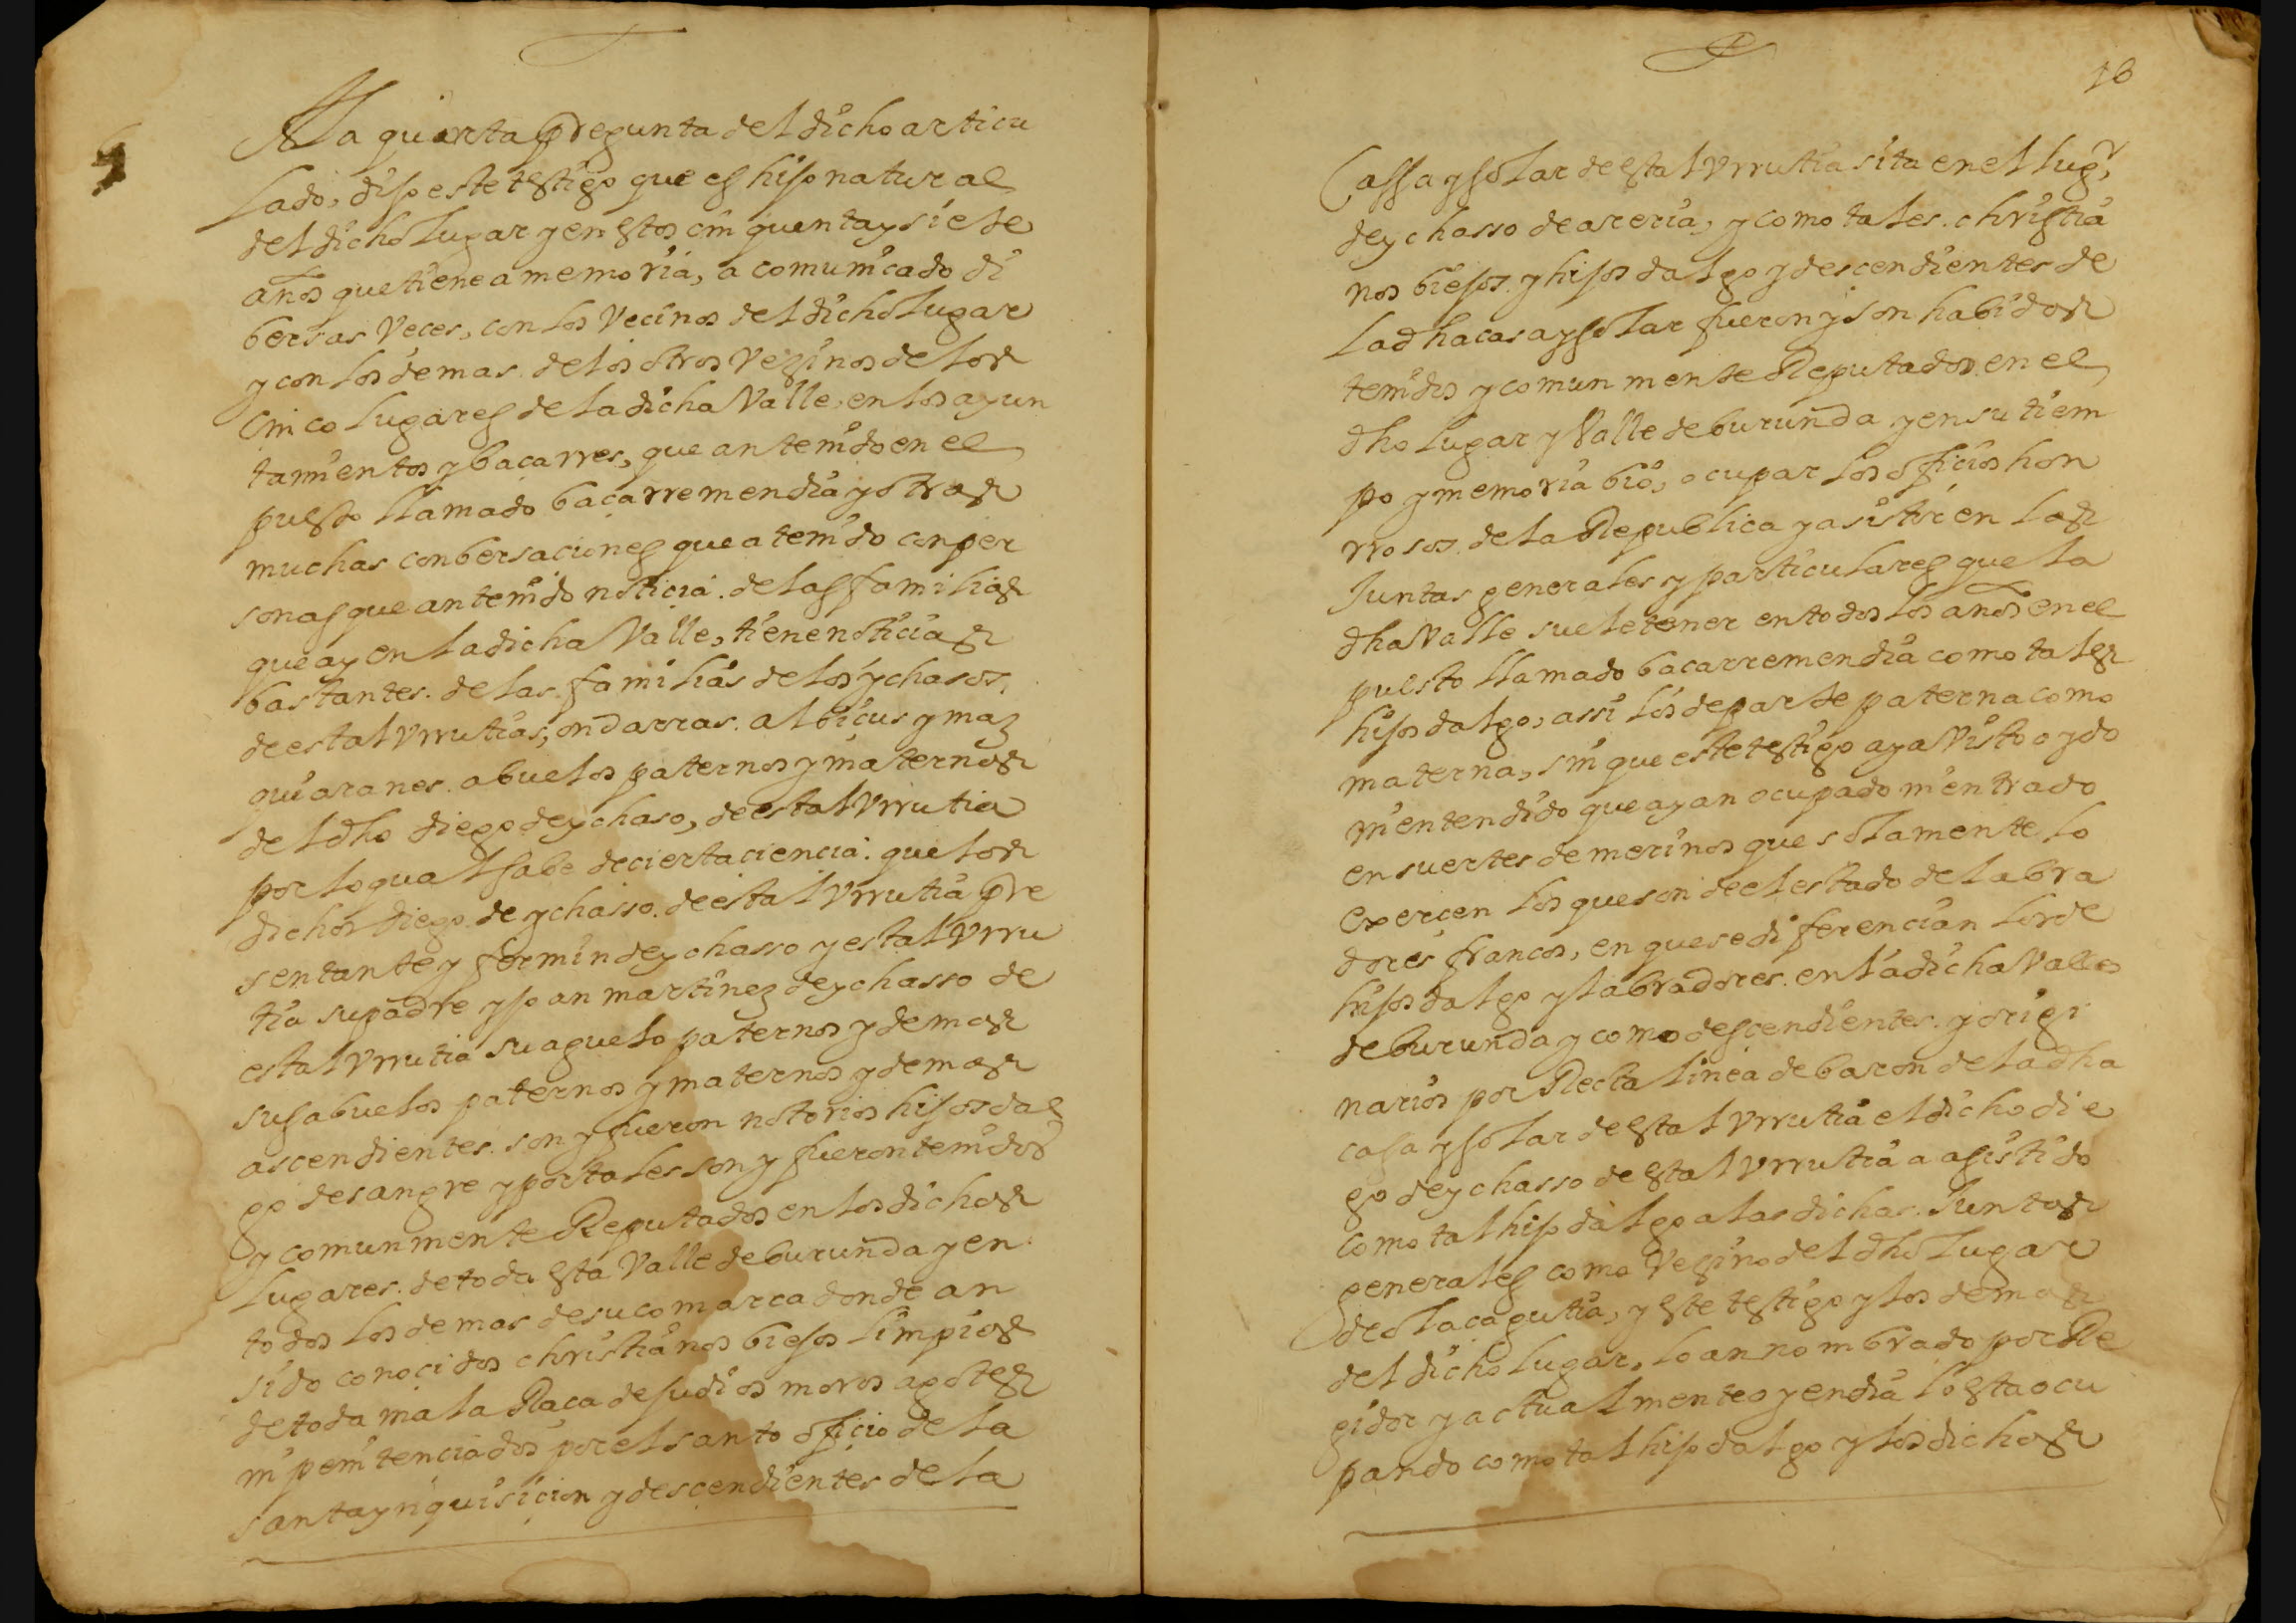 4
A la quarta pregunta del dicho articu
lado, dijo este testigo que es hijo natural
del dicho lugar y en estos cinquenta y siete
años que tiene a memoria, a comunicado di
bersas veces, con los vecinos del dicho lugar
y con los demas de los otros vezinos de los
cinco lugares de la dicha valle, en los ayun
tamientos y baçarres, que an tenido en el
puesto llamado baçarremendia y otras
muchas conbersaciones que a tenido con per
sonas que an tenido noticia de las familias
que ay en la dicha valle, tiene noticias
bastantes de las familias de los ychasos,
de estal Vrrutias, ondarras albicus y maz
quiaranes abuelos paternos y maternos
del dho diego de ychaso, de estal Vrrutia
por lo qual sabe de cierta ciencia que los
dichos diego de ychasso de estal Vrrutia pre
sentante y fermin de ychasso y estal Vrru
tia su padre y joan martinez de ychasso de
estal Vrrutia su aguelo paternos y demas
sus abuelos paternos y maternos y demas
ascendientes son y fueron notorios hijos dal
go de sangre y por tales son y fueron tenidos
y comunmente Reputados en los dichos
lugares de toda esta valle de burunda y en
todos los demas de su comarca donde an
sido conocidos christianos biejos limpios
de toda mala Raca de judios moros agotes
ni penitenciados por el santo oficio de la
santa ynquisicion y descendientes de la
18
Cassa y solar de estal Vrrutia sita en el lugr
de ychasso de areria, y como tales christia
nos biejos y hijos dalgo y descendientes de
la dha casa y solar fueron y son habidos
tenidos y comunmente Reputados en el
dho lugar y Valle de burunda y en su tiem
po y memoria bio, ocupar los oficios hon
rrosos de la Republica y asistir en las
Juntas generales y particulares que la
dha Valle suele tener en todos los años en el
puesto llamado bacarremendia como tales
hijos dalgo, assi los de parte paterna como
materna, sin que este testigo aya visto oydo
ni entendido que ayan ocupado ni entrado
en suertes de merinos que solamente lo
exercen los que son de el estado de labra
dores francos, en que se diferencian los de
hijos dalgo y labradores en la dicha Valle
de burunda y como descendientes y origi
narios por Recta linea de baron de la dha
casa y solar de estal Vrrutia el dicho die
go de ychasso de estal Vrrutia a asistido
como tal hijo dalgo a las dichas Juntas
generales como Vezino del dho lugar
de olaçagutia, y este testigo y los demas
del dicho lugar, lo an nombrado por Re
gidor y actualmente oy en dia lo esta ocu
pando como tal hijo dalgo y los dichos